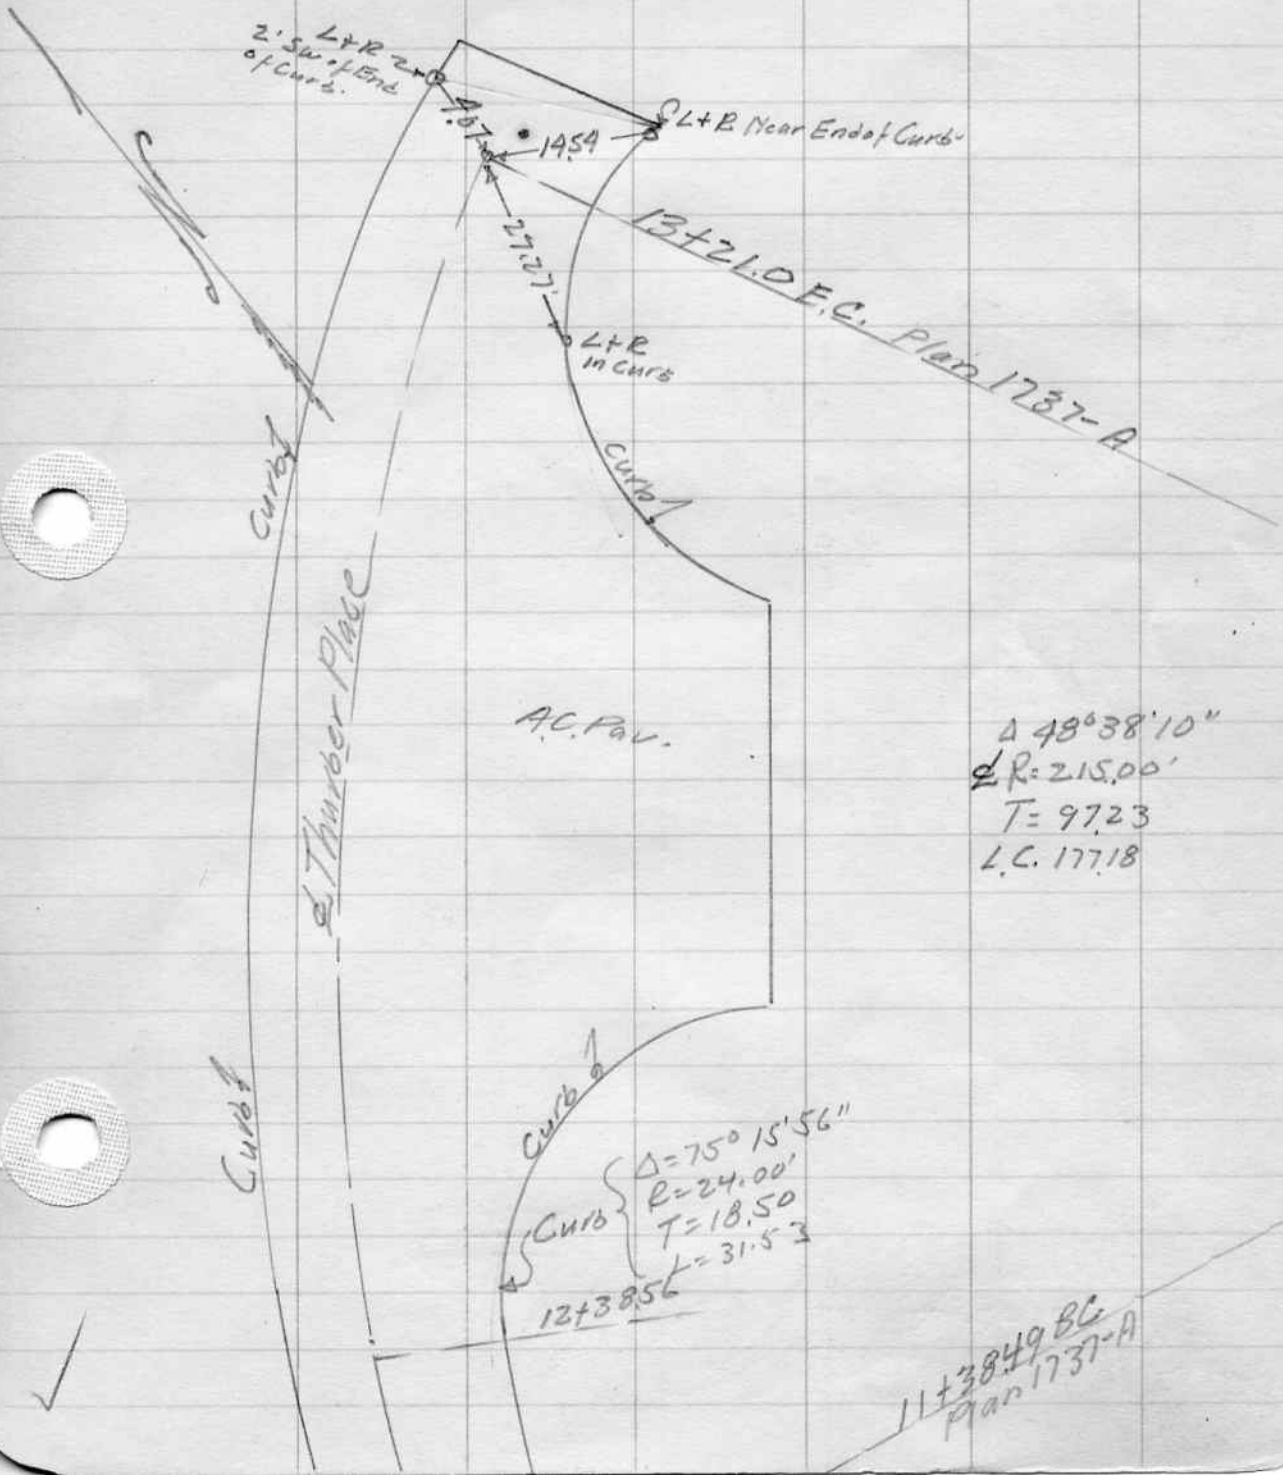 L+R
2' SW of End
of Curb.
4.07
14.54
L+R Near End of Curb
13+21.0 E.C. Plan 1737-A
27.27'
L+R
in Curb
Curb
Curb
℄ Thurber Place
A.C. Pav.
Δ 48°38'10"
℄ R=215.00'
T= 97.23
L.C. 177.18
Curb
Curb
Curb
Δ=75° 15' 56"
R=24.00'
T=18.50
L=31.53
12+38.56
11+38.49 BC
Plan 1737-A